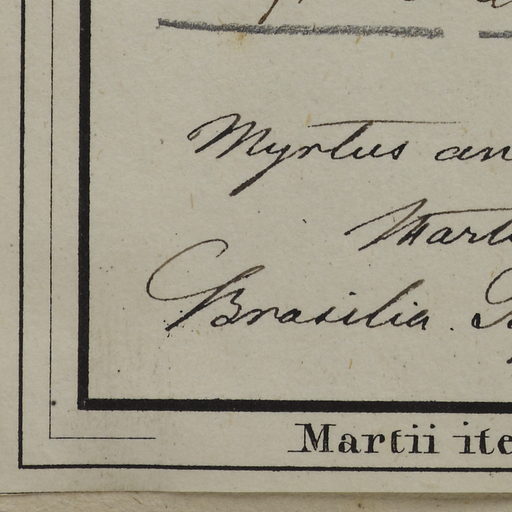 Myrtus an
Mart
Brasilia.
Martii ite